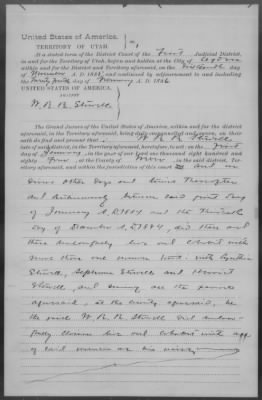 United States of America.
TERRITORY OF UTAH. } ss.
At a stated term of the District Court of the First Judicial District,
in and for the Territory of Utah, begun and holden at the City of Ogden
within and for the District and Territory aforesaid, on the day
of November A. D. 1885, and continued by adjournment to and including
the day of A. D. 1886
UNITED STATES OF AMERICA,
AGAINST
W. R. R. Stowell
The Grand Jurors of the United States of America, within and for the district
aforesaid, in the Territory aforesaid, being duly empanelled and sworn, on their
oath do find and present that W. R. R. Stowell
late of said district, in the Territory aforesaid, to-wit: on the First
day of January, in the year of our Lord one thousand eight hundred and
eighty Four, at the County of in the said district, Territory
aforesaid, and within the jurisdiction of this court and on
divers other days and times thereafter
and between said first day
of January A.D. 1884 and the
day of December A.D. 1884, did then and
there unlawfully live and cohabit with
more than one woman to wit: with Cynthia
Stowell, Sophronia Stowell and Harriet
Stowell, and during all the period
aforesaid, at the county aforesaid, he
the said W. R. R. Stowell did unlaw-
fully claim live and cohabit with all
of said women as his wives